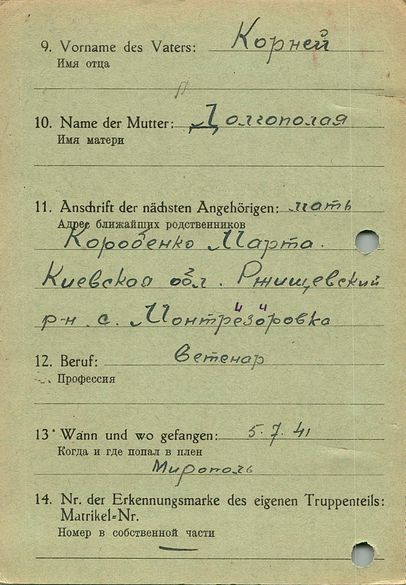 9. Vorname des Vaters: Корней
Имя отца
10. Name der Mutter: Долгополая
Имя матери
11. Anschrift der nächsten Angehörigen: мать
Адрес ближайших родственников
Коробенко Марта.
Киевская обл. Ржищевский
р-н с.
12. Beruf: Ветенар
Профессия
13. Wann und wo gefangen: 5.7.41
Когда и где попал в плен
Мирополь
14. Nr. der Erkennungsmarke des eigenen Truppenteils:
Matrikel-Nr.
Номер в собственной части
—